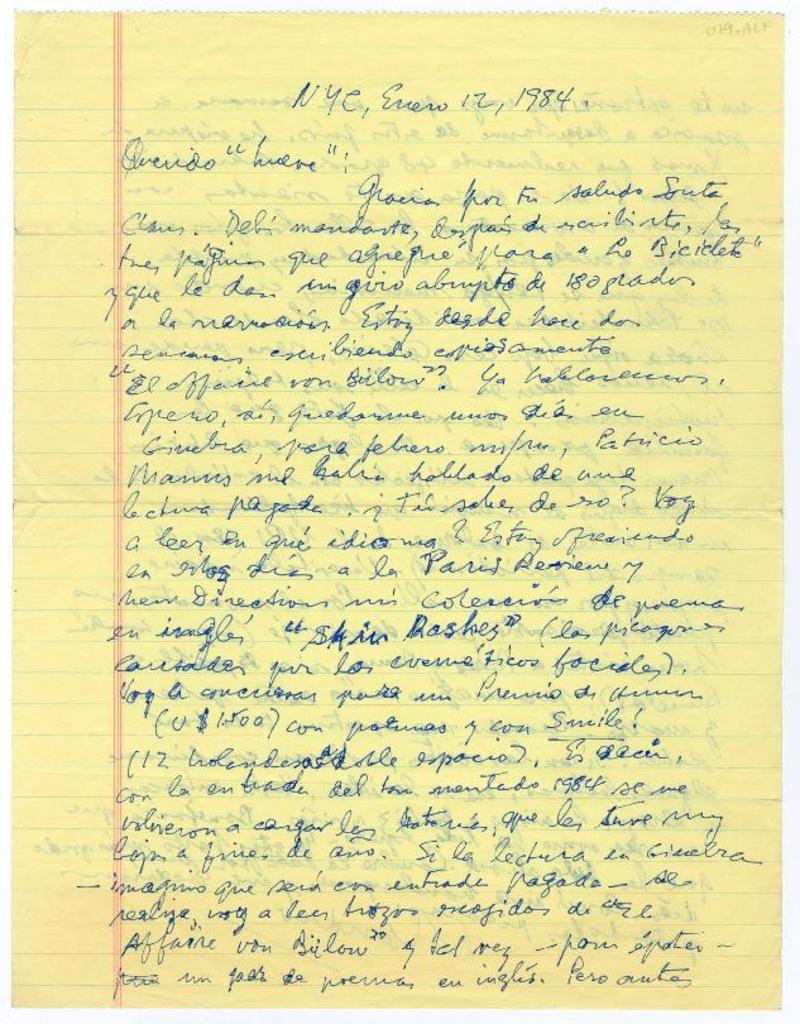 019.ALF
NYC, Enero 12, 1984.
Querido "hueve":
Gracias por tu saludo Santa
Claus. Debí mandarte, después de escribirte, las
tres páginas que agregué para "La Bicicleta"
y que le dan un giro abrupto de 180 grados
a la narración. Estoy desde hace dos
semanas escribiendo copiosamente
"El affaire von Bülow". Ya hablaremos.
Espero, sí, quedarme unos días en
Ginebra, para febrero m/m, Patricio
Manns me había hablado de una
lectura pagada. ¿Tú sabes de eso? Voy
a leer en qué idioma? Estoy ofreciendo
en estos días a la Paris Review y
New Directions mi colección de poemas
en inglés "Skin Rashes" (las picazones
causadas por los cosméticos faciales).
Voy a concursar para un Premio de
(U$1500) con poemas y con Smile!
(12 holandesas doble espacio). Es decir,
con la entrada del tan mentado 1984 se me
volvieron a cargar las baterías, que las tuve muy
bajas a fines de año. Si la lectura en Ginebra
— imagino que será con entrada pagada — se
realiza, voy a leer trozos escogidos de "El
Affaire von Bülow" y tal vez — para épater —
un par de poemas en inglés. Pero antes